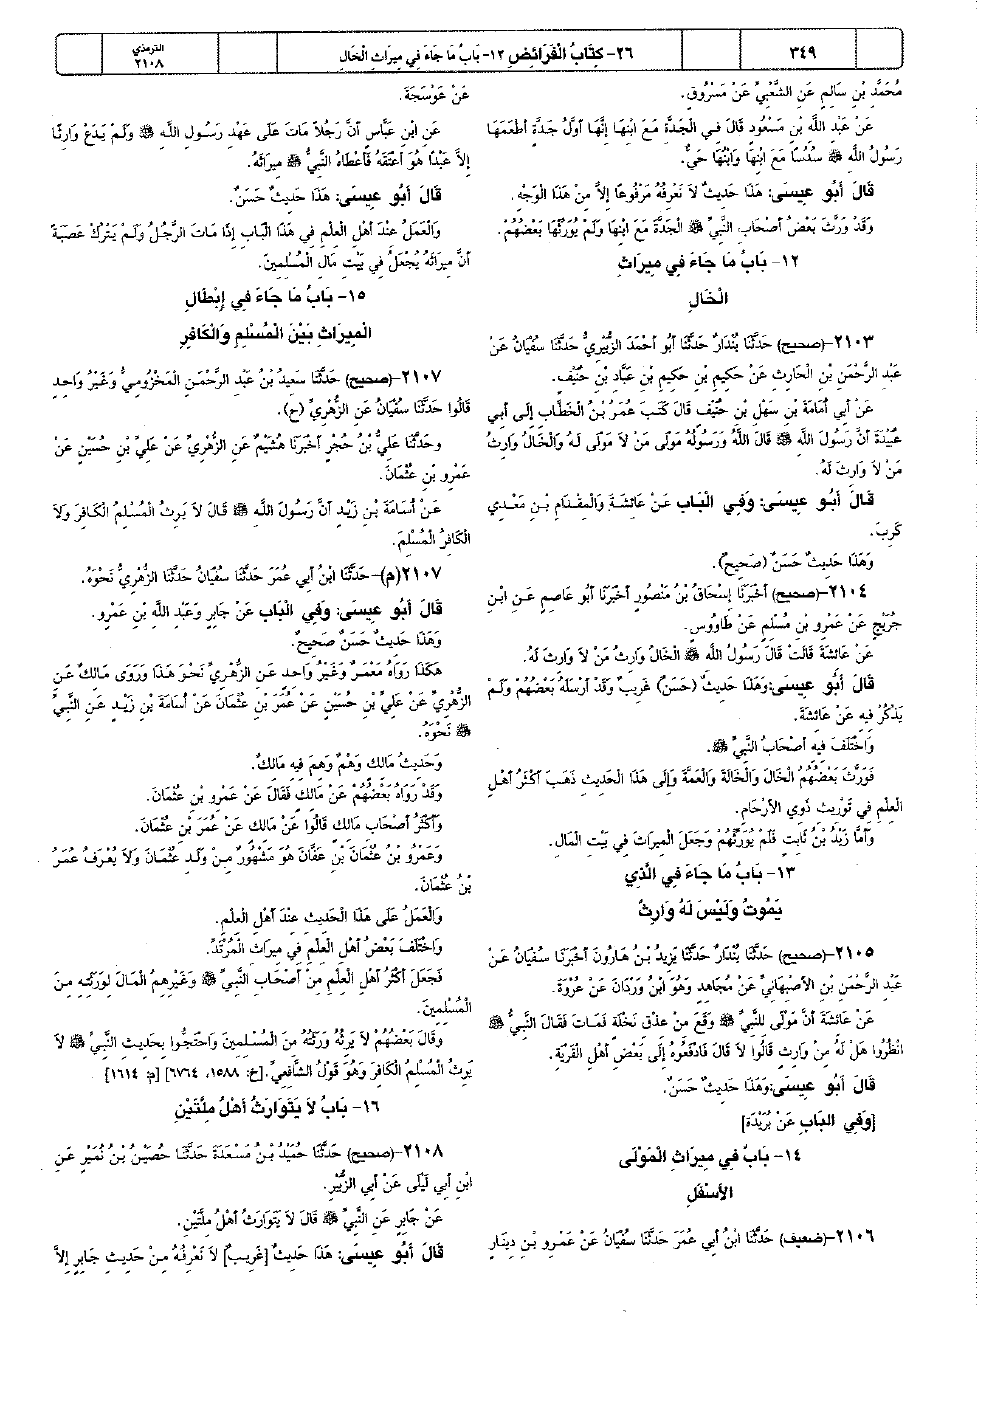 ٣٤٩
٢٦- كِتَابُ الْفَرَائِضِ ١٢- بَابُ مَا جَاءَ فِي مِيرَاثِ الْخَالِ
الترمذي
٢١٠٨
مُحَمَّدِ بْنِ سَالِمٍ عَنِ الشَّعْبِيِّ عَنْ مَسْرُوقٍ.
عَنْ عَبْدِ اللَّهِ بْنِ مَسْعُودٍ قَالَ فِي الْجَدَّةِ مَعَ ابْنِهَا إِنَّهَا أَوَّلُ جَدَّةٍ أَطْعَمَهَا
رَسُولُ اللَّهِ ﷺ سُدُسًا مَعَ ابْنِهَا وَابْنُهَا حَيٌّ.
قَالَ أَبُو عِيسَى: هَذَا حَدِيثٌ لاَ نَعْرِفُهُ مَرْفُوعًا إِلاَّ مِنْ هَذَا الْوَجْهِ.
وَقَدْ وَرَّثَ بَعْضُ أَصْحَابِ النَّبِيِّ ﷺ الْجَدَّةَ مَعَ ابْنِهَا وَلَمْ يُوَرِّثْهَا بَعْضُهُمْ.
١٢- بَابُ مَا جَاءَ فِي مِيرَاثِ
الْخَالِ
٢١٠٣-(صحيح) حَدَّثَنَا بُنْدَارٌ حَدَّثَنَا أَبُو أَحْمَدَ الزُّبَيْرِيُّ حَدَّثَنَا سُفْيَانُ عَنْ
عَبْدِ الرَّحْمَنِ بْنِ الْحَارِثِ عَنْ حَكِيمِ بْنِ حَكِيمِ بْنِ عَبَّادِ بْنِ حُنَيْفٍ.
عَنْ أَبِي أُمَامَةَ بْنِ سَهْلِ بْنِ حُنَيْفٍ قَالَ كَتَبَ عُمَرُ بْنُ الْخَطَّابِ إِلَى أَبِي
عُبَيْدَةَ أَنَّ رَسُولَ اللَّهِ ﷺ قَالَ اللَّهُ وَرَسُولُهُ مَوْلَى مَنْ لاَ مَوْلَى لَهُ وَالْخَالُ وَارِثُ
مَنْ لاَ وَارِثَ لَهُ.
قَالَ أَبُو عِيسَى: وَفِي الْبَابِ عَنْ عَائِشَةَ وَالْمِقْدَامِ بْنِ مَعْدِي
كَرِبَ.
وَهَذَا حَدِيثٌ حَسَنٌ (صَحِيحٌ).
٢١٠٤-(صحيح) أَخْبَرَنَا إِسْحَاقُ بْنُ مَنْصُورٍ أَخْبَرَنَا أَبُو عَاصِمٍ عَنِ ابْنِ
جُرَيْجٍ عَنْ عَمْرِو بْنِ مُسْلِمٍ عَنْ طَاوُوسٍ.
عَنْ عَائِشَةَ قَالَتْ قَالَ رَسُولُ اللَّهِ ﷺ الْخَالُ وَارِثُ مَنْ لاَ وَارِثَ لَهُ.
قَالَ أَبُو عِيسَى:وَهَذَا حَدِيثٌ (حَسَنٌ) غَرِيبٌ وَقَدْ أَرْسَلَهُ بَعْضُهُمْ وَلَمْ
يَذْكُرْ فِيهِ عَنْ عَائِشَةَ.
وَاخْتَلَفَ فِيهِ أَصْحَابُ النَّبِيِّ ﷺ.
فَوَرَّثَ بَعْضُهُمُ الْخَالَ وَالْخَالَةَ وَالْعَمَّةَ وَإِلَى هَذَا الْحَدِيثِ ذَهَبَ أَكْثَرُ أَهْلِ
الْعِلْمِ فِي تَوْرِيثِ ذَوِي الأَرْحَامِ.
وَأَمَّا زَيْدُ بْنُ ثَابِتٍ فَلَمْ يُوَرِّثْهُمْ وَجَعَلَ الْمِيرَاثَ فِي بَيْتِ الْمَالِ.
١٣- بَابُ مَا جَاءَ فِي الَّذِي
يَمُوتُ وَلَيْسَ لَهُ وَارِثٌ
٢١٠٥-(صحيح) حَدَّثَنَا بُنْدَارٌ حَدَّثَنَا يَزِيدُ بْنُ هَارُونَ أَخْبَرَنَا سُفْيَانُ عَنْ
عَبْدِ الرَّحْمَنِ بْنِ الأَصْبَهَانِيِّ عَنْ مُجَاهِدٍ وَهُوَ ابْنُ وَرْدَانَ عَنْ عُرْوَةَ.
عَنْ عَائِشَةَ أَنَّ مَوْلًى لِلنَّبِيِّ ﷺ وَقَعَ مِنْ عِذْقِ نَخْلَةٍ فَمَاتَ فَقَالَ النَّبِيُّ ﷺ
انْظُرُوا هَلْ لَهُ مِنْ وَارِثٍ قَالُوا لاَ قَالَ فَادْفَعُوهُ إِلَى بَعْضِ أَهْلِ الْقَرْيَةِ.
قَالَ أَبُو عِيسَى:وَهَذَا حَدِيثٌ حَسَنٌ.
[وَفِي الْبَابِ عَنْ بُرَيْدَةَ]
١٤- بَابٌ فِي مِيرَاثِ الْمَوْلَى
الأَسْفَلِ
٢١٠٦-(ضعيف) حَدَّثَنَا ابْنُ أَبِي عُمَرَ حَدَّثَنَا سُفْيَانُ عَنْ عَمْرِو بْنِ دِينَارٍ
عَنْ عَوْسَجَةَ.
عَنِ ابْنِ عَبَّاسٍ أَنَّ رَجُلاً مَاتَ عَلَى عَهْدِ رَسُولِ اللَّهِ ﷺ وَلَمْ يَدَعْ وَارِثًا
إِلاَّ عَبْدًا هُوَ أَعْتَقَهُ فَأَعْطَاهُ النَّبِيُّ ﷺ مِيرَاثَهُ.
قَالَ أَبُو عِيسَى: هَذَا حَدِيثٌ حَسَنٌ.
وَالْعَمَلُ عِنْدَ أَهْلِ الْعِلْمِ فِي هَذَا الْبَابِ إِذَا مَاتَ الرَّجُلُ وَلَمْ يَتْرُكْ عَصَبَةً
أَنَّ مِيرَاثَهُ يُجْعَلُ فِي بَيْتِ مَالِ الْمُسْلِمِينَ.
١٥- بَابُ مَا جَاءَ فِي إِبْطَالِ
الْمِيرَاثِ بَيْنَ الْمُسْلِمِ وَالْكَافِرِ
٢١٠٧-(صحيح) حَدَّثَنَا سَعِيدُ بْنُ عَبْدِ الرَّحْمَنِ الْمَخْزُومِيُّ وَغَيْرُ وَاحِدٍ
قَالُوا حَدَّثَنَا سُفْيَانُ عَنِ الزُّهْرِيِّ (ح).
وحَدَّثَنَا عَلِيُّ بْنُ حُجْرٍ أَخْبَرَنَا هُشَيْمٌ عَنِ الزُّهْرِيِّ عَنْ عَلِيِّ بْنِ حُسَيْنٍ عَنْ
عَمْرِو بْنِ عُثْمَانَ.
عَنْ أُسَامَةَ بْنِ زَيْدٍ أَنَّ رَسُولَ اللَّهِ ﷺ قَالَ لاَ يَرِثُ الْمُسْلِمُ الْكَافِرَ وَلاَ
الْكَافِرُ الْمُسْلِمَ.
٢١٠٧(م)-حَدَّثَنَا ابْنُ أَبِي عُمَرَ حَدَّثَنَا سُفْيَانُ حَدَّثَنَا الزُّهْرِيُّ نَحْوَهُ.
قَالَ أَبُو عِيسَى: وَفِي الْبَابِ عَنْ جَابِرٍ وَعَبْدِ اللَّهِ بْنِ عَمْرٍو.
وَهَذَا حَدِيثٌ حَسَنٌ صَحِيحٌ.
هَكَذَا رَوَاهُ مَعْمَرٌ وَغَيْرُ وَاحِدٍ عَنِ الزُّهْرِيِّ نَحْوَ هَذَا وَرَوَى مَالِكٌ عَنِ
الزُّهْرِيِّ عَنْ عَلِيِّ بْنِ حُسَيْنٍ عَنْ عُمَرَ بْنِ عُثْمَانَ عَنْ أُسَامَةَ بْنِ زَيْدٍ عَنِ النَّبِيِّ
ﷺ نَحْوَهُ.
وَحَدِيثُ مَالِكٍ وَهْمٌ وَهِمَ فِيهِ مَالِكٌ.
وَقَدْ رَوَاهُ بَعْضُهُمْ عَنْ مَالِكٍ فَقَالَ عَنْ عَمْرِو بْنِ عُثْمَانَ.
وَأَكْثَرُ أَصْحَابِ مَالِكٍ قَالُوا عَنْ مَالِكٍ عَنْ عُمَرَ بْنِ عُثْمَانَ.
وَعَمْرُو بْنُ عُثْمَانَ بْنِ عَفَّانَ هُوَ مَشْهُورٌ مِنْ وَلَدِ عُثْمَانَ وَلاَ يُعْرَفُ عُمَرُ
بْنُ عُثْمَانَ.
وَالْعَمَلُ عَلَى هَذَا الْحَدِيثِ عِنْدَ أَهْلِ الْعِلْمِ.
وَاخْتَلَفَ بَعْضُ أَهْلِ الْعِلْمِ فِي مِيرَاثِ الْمُرْتَدِّ.
فَجَعَلَ أَكْثَرُ أَهْلِ الْعِلْمِ مِنْ أَصْحَابِ النَّبِيِّ ﷺ وَغَيْرِهِمُ الْمَالَ لِوَرَثَتِهِ مِنَ
الْمُسْلِمِينَ.
وَقَالَ بَعْضُهُمْ لاَ يَرِثُهُ وَرَثَتُهُ مِنَ الْمُسْلِمِينَ وَاحْتَجُّوا بِحَدِيثِ النَّبِيِّ ﷺ لاَ
يَرِثُ الْمُسْلِمُ الْكَافِرَ وَهُوَ قَوْلُ الشَّافِعِيِّ.[خ: ١٥٨٨، ٦٧٦٤] [م: ١٦١٤]
١٦- بَابُ لاَ يَتَوَارَثُ أَهْلُ مِلَّتَيْنِ
٢١٠٨-(صحيح) حَدَّثَنَا حُمَيْدُ بْنُ مَسْعَدَةَ حَدَّثَنَا حُصَيْنُ بْنُ نُمَيْرٍ عَنِ
ابْنِ أَبِي لَيْلَى عَنْ أَبِي الزُّبَيْرِ.
عَنْ جَابِرٍ عَنِ النَّبِيِّ ﷺ قَالَ لاَ يَتَوَارَثُ أَهْلُ مِلَّتَيْنِ.
قَالَ أَبُو عِيسَى: هَذَا حَدِيثٌ [غَرِيبٌ] لاَ نَعْرِفُهُ مِنْ حَدِيثِ جَابِرٍ إِلاَّ